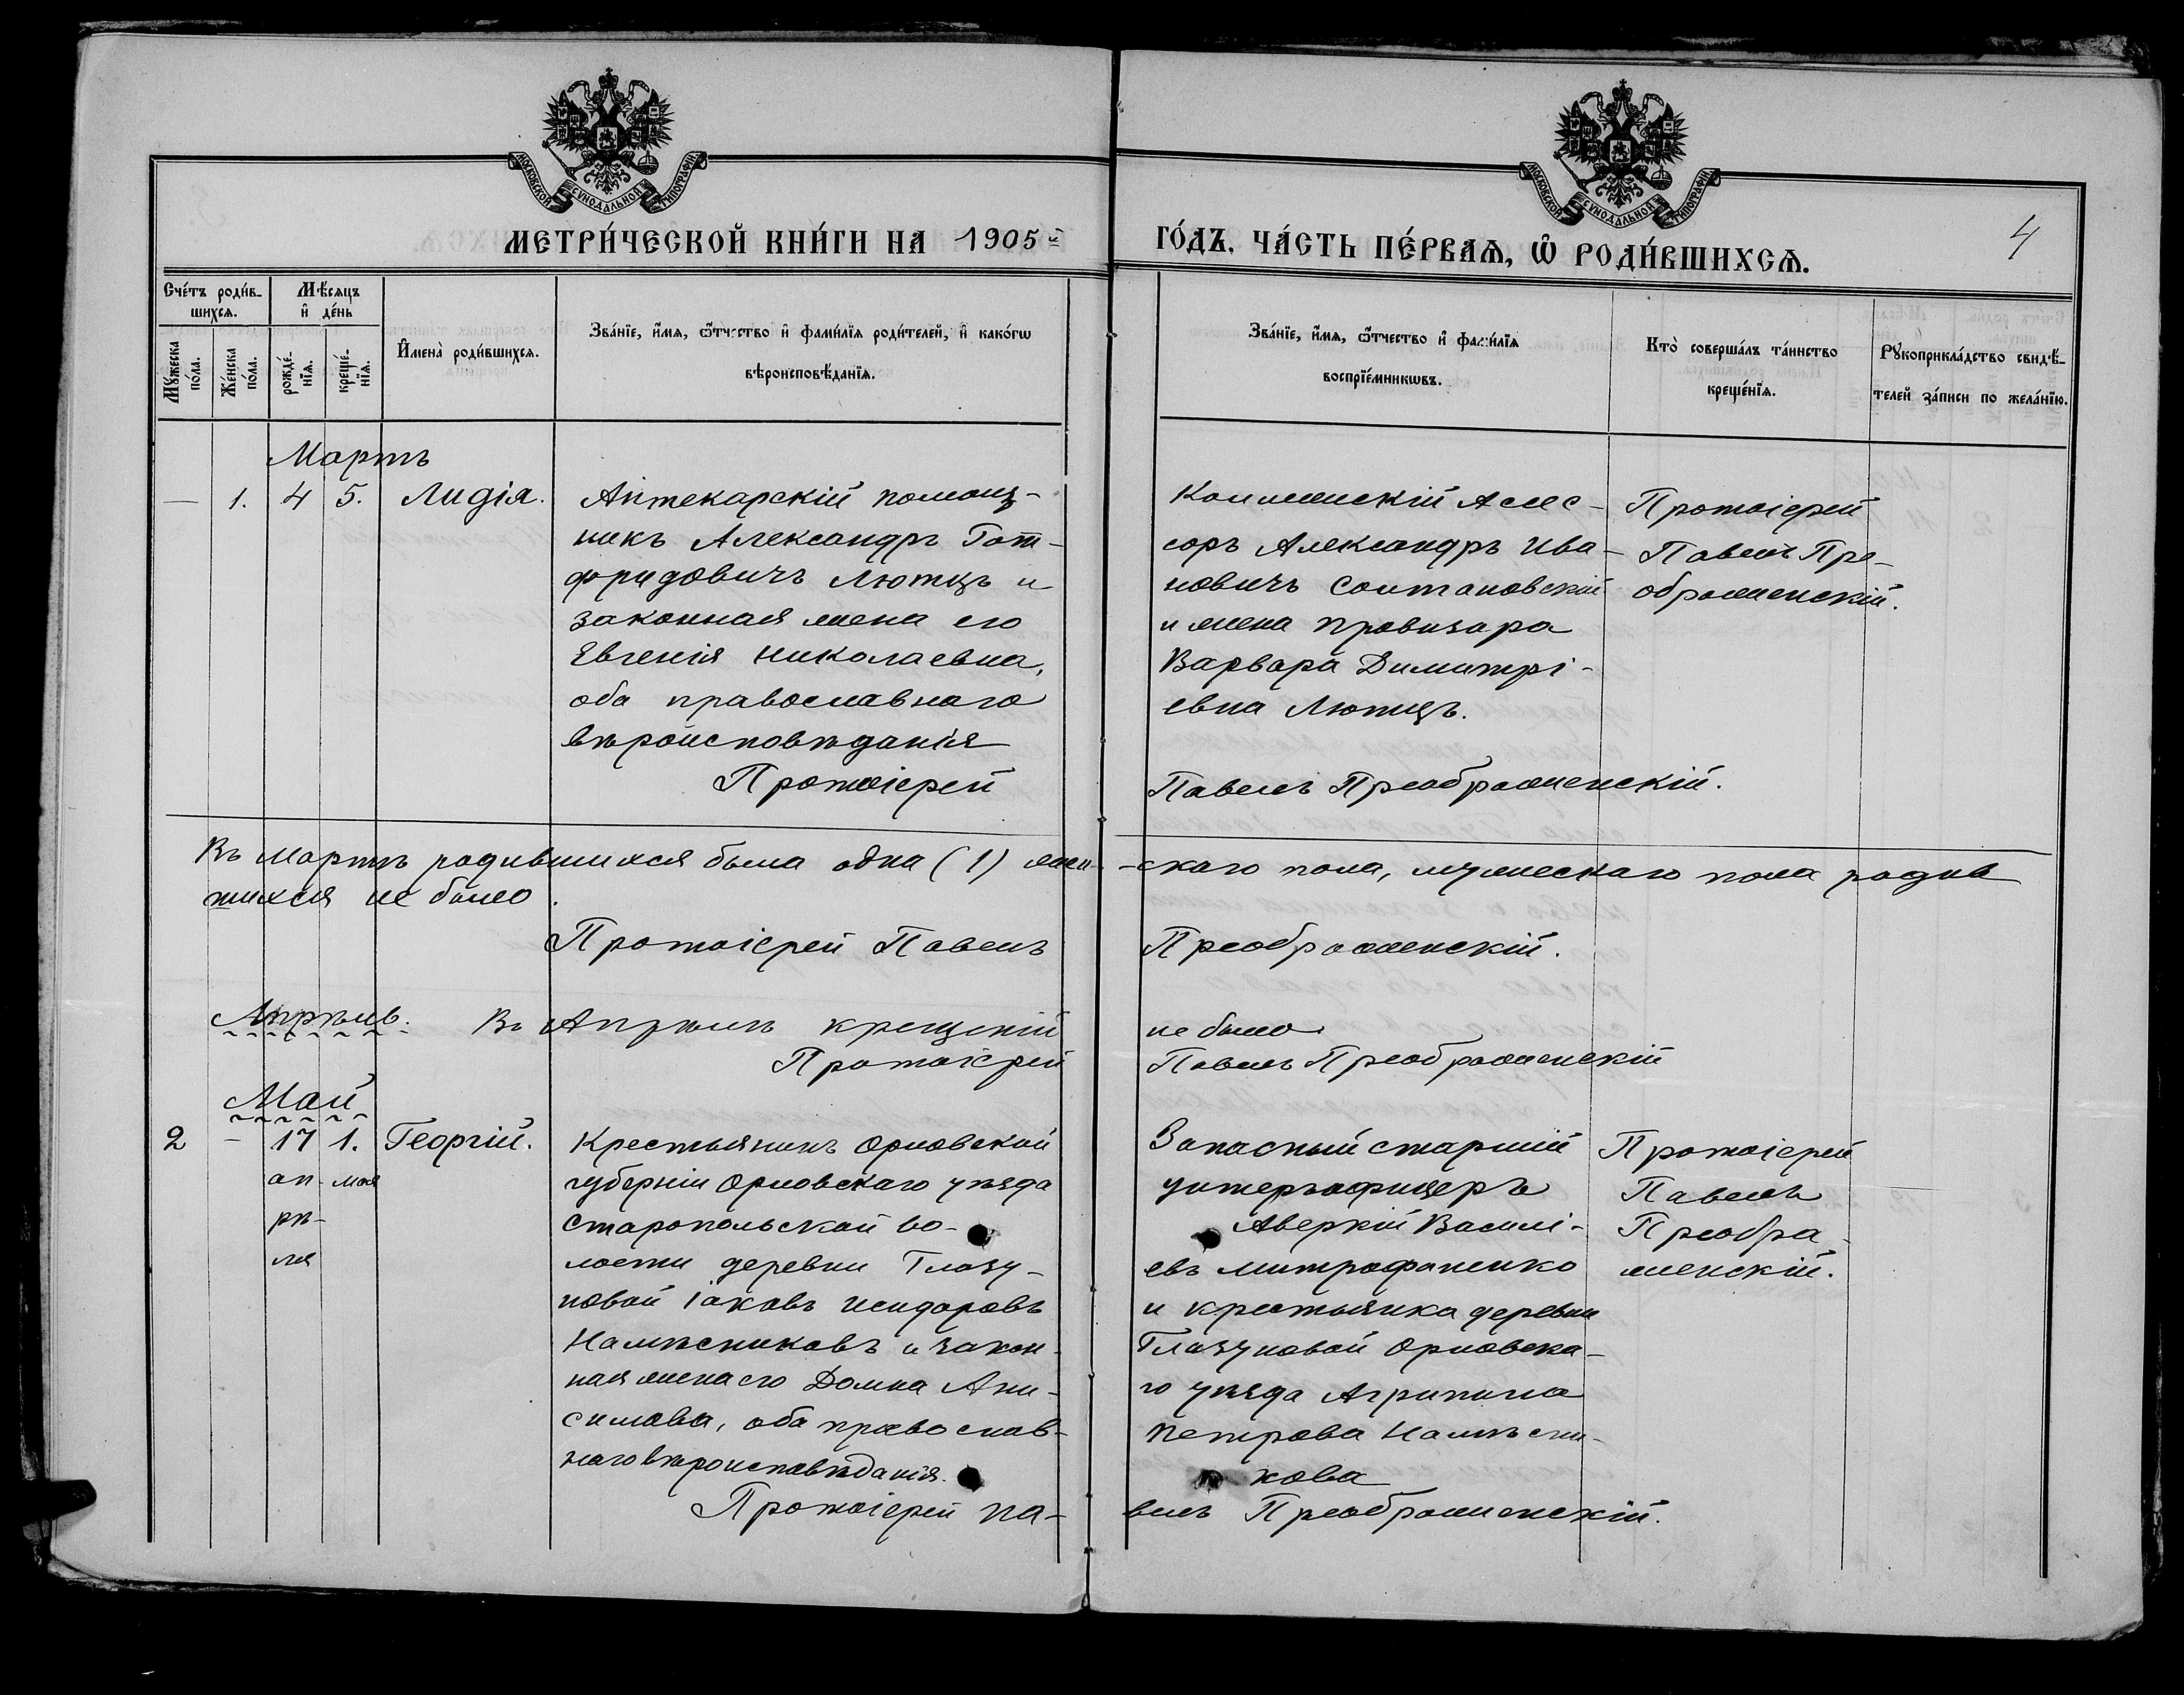 МОСКОВСКОЙ СѴНОДАЛЬНОЙ ТИПОГРАФІИ
МОСКОВСКОЙ СѴНОДАЛЬНОЙ ТИПОГРАФІИ
МЕТРИ́ЧЕСКОЙ КНИ́ГИ НА 1905й
ГО́ДЪ. ЧА́СТЬ ПЕ́РВАѦ, Ѽ РОДИ́ВШИХСѦ.
4
Сче́тъ роди́в-
шихсѧ.
Мѣ́сѧцъ
и҆ де́нь
Мꙋ́жеска
по́ла.
Же́нска
по́ла.
рожде́-
нїѧ.
креще́-
нїѧ.
И҆мена̀ роди́вшихсѧ.
Зва́нїе, и҆́мѧ, ѻ҆́тчество и҆ фами́лїѧ роди́телей, и҆ како́гѡ
вѣроисповѣ́данїѧ.
Зва́нїе, и҆́мѧ, ѻ҆́тчество и҆ фами́лїѧ
воспрїе́мникѡвъ.
Кто̀ соверша́лъ та́инство
креще́нїѧ.
Рꙋкоприкла́дство свидѣ́-
телей за́писи по жела́нїю.
Мартъ
— 1. 4 5. Лидія.
Аптекарскій помощ-
никъ Александръ Гот-
фридовичъ Лютцъ и
законная жена его
Евгенія Николаевна,
оба православнаго
вѣроисповѣданія
Протоіерей
Коллежскій Асес-
соръ Александръ Ива-
новичъ Солтановскій
и жена провизора
Варвара Димитрі-
евна Лютцъ.
Павелъ Преображенскій.
Протоіерей
Павелъ Пре-
ображенскій.
Въ Мартѣ родившихся была одна (1) жен- -скаго пола, мужескаго пола родив
шихся не было.
Протоіерей Павелъ Преображенскій.
Апрѣль. Въ Апрѣлѣ крещеній не было
Протоіерей Павелъ Преображенскій
Май
2 — 17 1. Георгій.
ап- мая
рѣ-
ля
Крестьянинъ Орловской
губерніи Орловскаго уѣзда
Старопольской во-
лости деревни Глазу-
новой Іаковъ Исидоровъ
Намѣсниковъ и закон-
ная жена его Домна Ани-
симова, оба православ-
наго вѣроисповѣданія.
Протоіерей Па-
Запасный старшій
унтеръофицеръ
Аверкій Василі-
евъ Митрофаненко
и крестьянка деревни
Глазуновой Орловска-
го уѣзда Агрипина
Петрова Намѣсни-
кова
велъ Преображенскій.
Протоіерей
Павелъ
Преобра-
женскій.